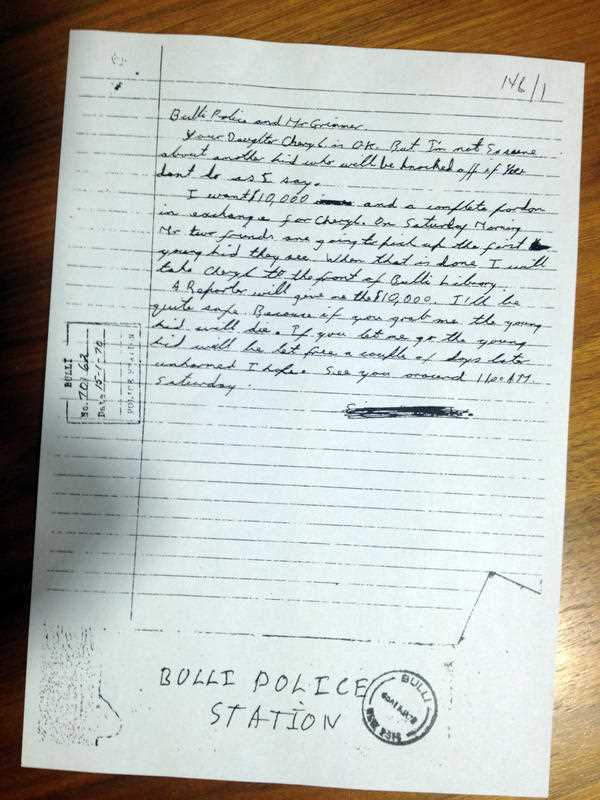 146/1
Bulli Police and Mr Grimmer.
Your Daughter Cheryl is O.K. But I'm not So
about another kid who will be knocked off if you
dont do as I say.
I want $10,000 and a complete pardon
in exchange for Cheryl. On Saturday Morning
My two friends are going to pick up the first
young kid they see. When that is done I will
take Cheryl to the front of Bulli Library.
A Reporter will give me the $10,000. I'll be
quite safe. Because if you grab me the young
kid will die. If you let me go the young
kid will be let free a couple of days later
unharmed I hope. See you around 11.00 AM.
Saturday.
BULLI
No. 70/62
Date 15-1-70
POLICE STATION
BULLI POLICE
STATION
BULLI